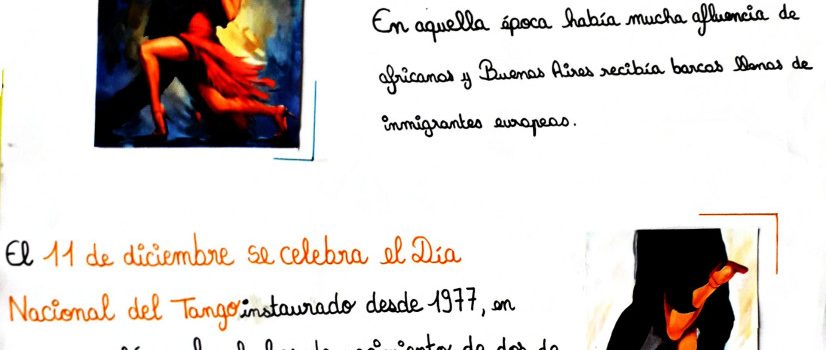 En aquella época había mucha afluencia de
africanos y Buenos Aires recibía barcos llenos de
inmigrantes europeos.
El 11 de diciembre se celebra el Día
Nacional del Tango instaurado desde 1977, en
de dos de